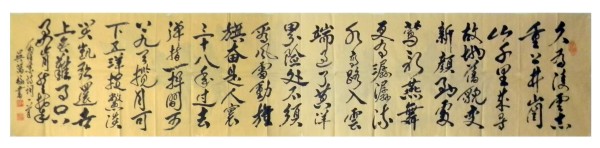 久有凌云志
重上井岡
山千里来寻
故地舊貌变
新顔到處
莺歌燕舞
更有潺潺流
水高路入雲
端过了黄洋
界險处不須
看風雷動旌
旗奋是人寰
三十八年过去
弹指一揮間可
上九天揽月可
下五洋捉鳖谈
笑凯歌還世
上无難事只
要肯登攀